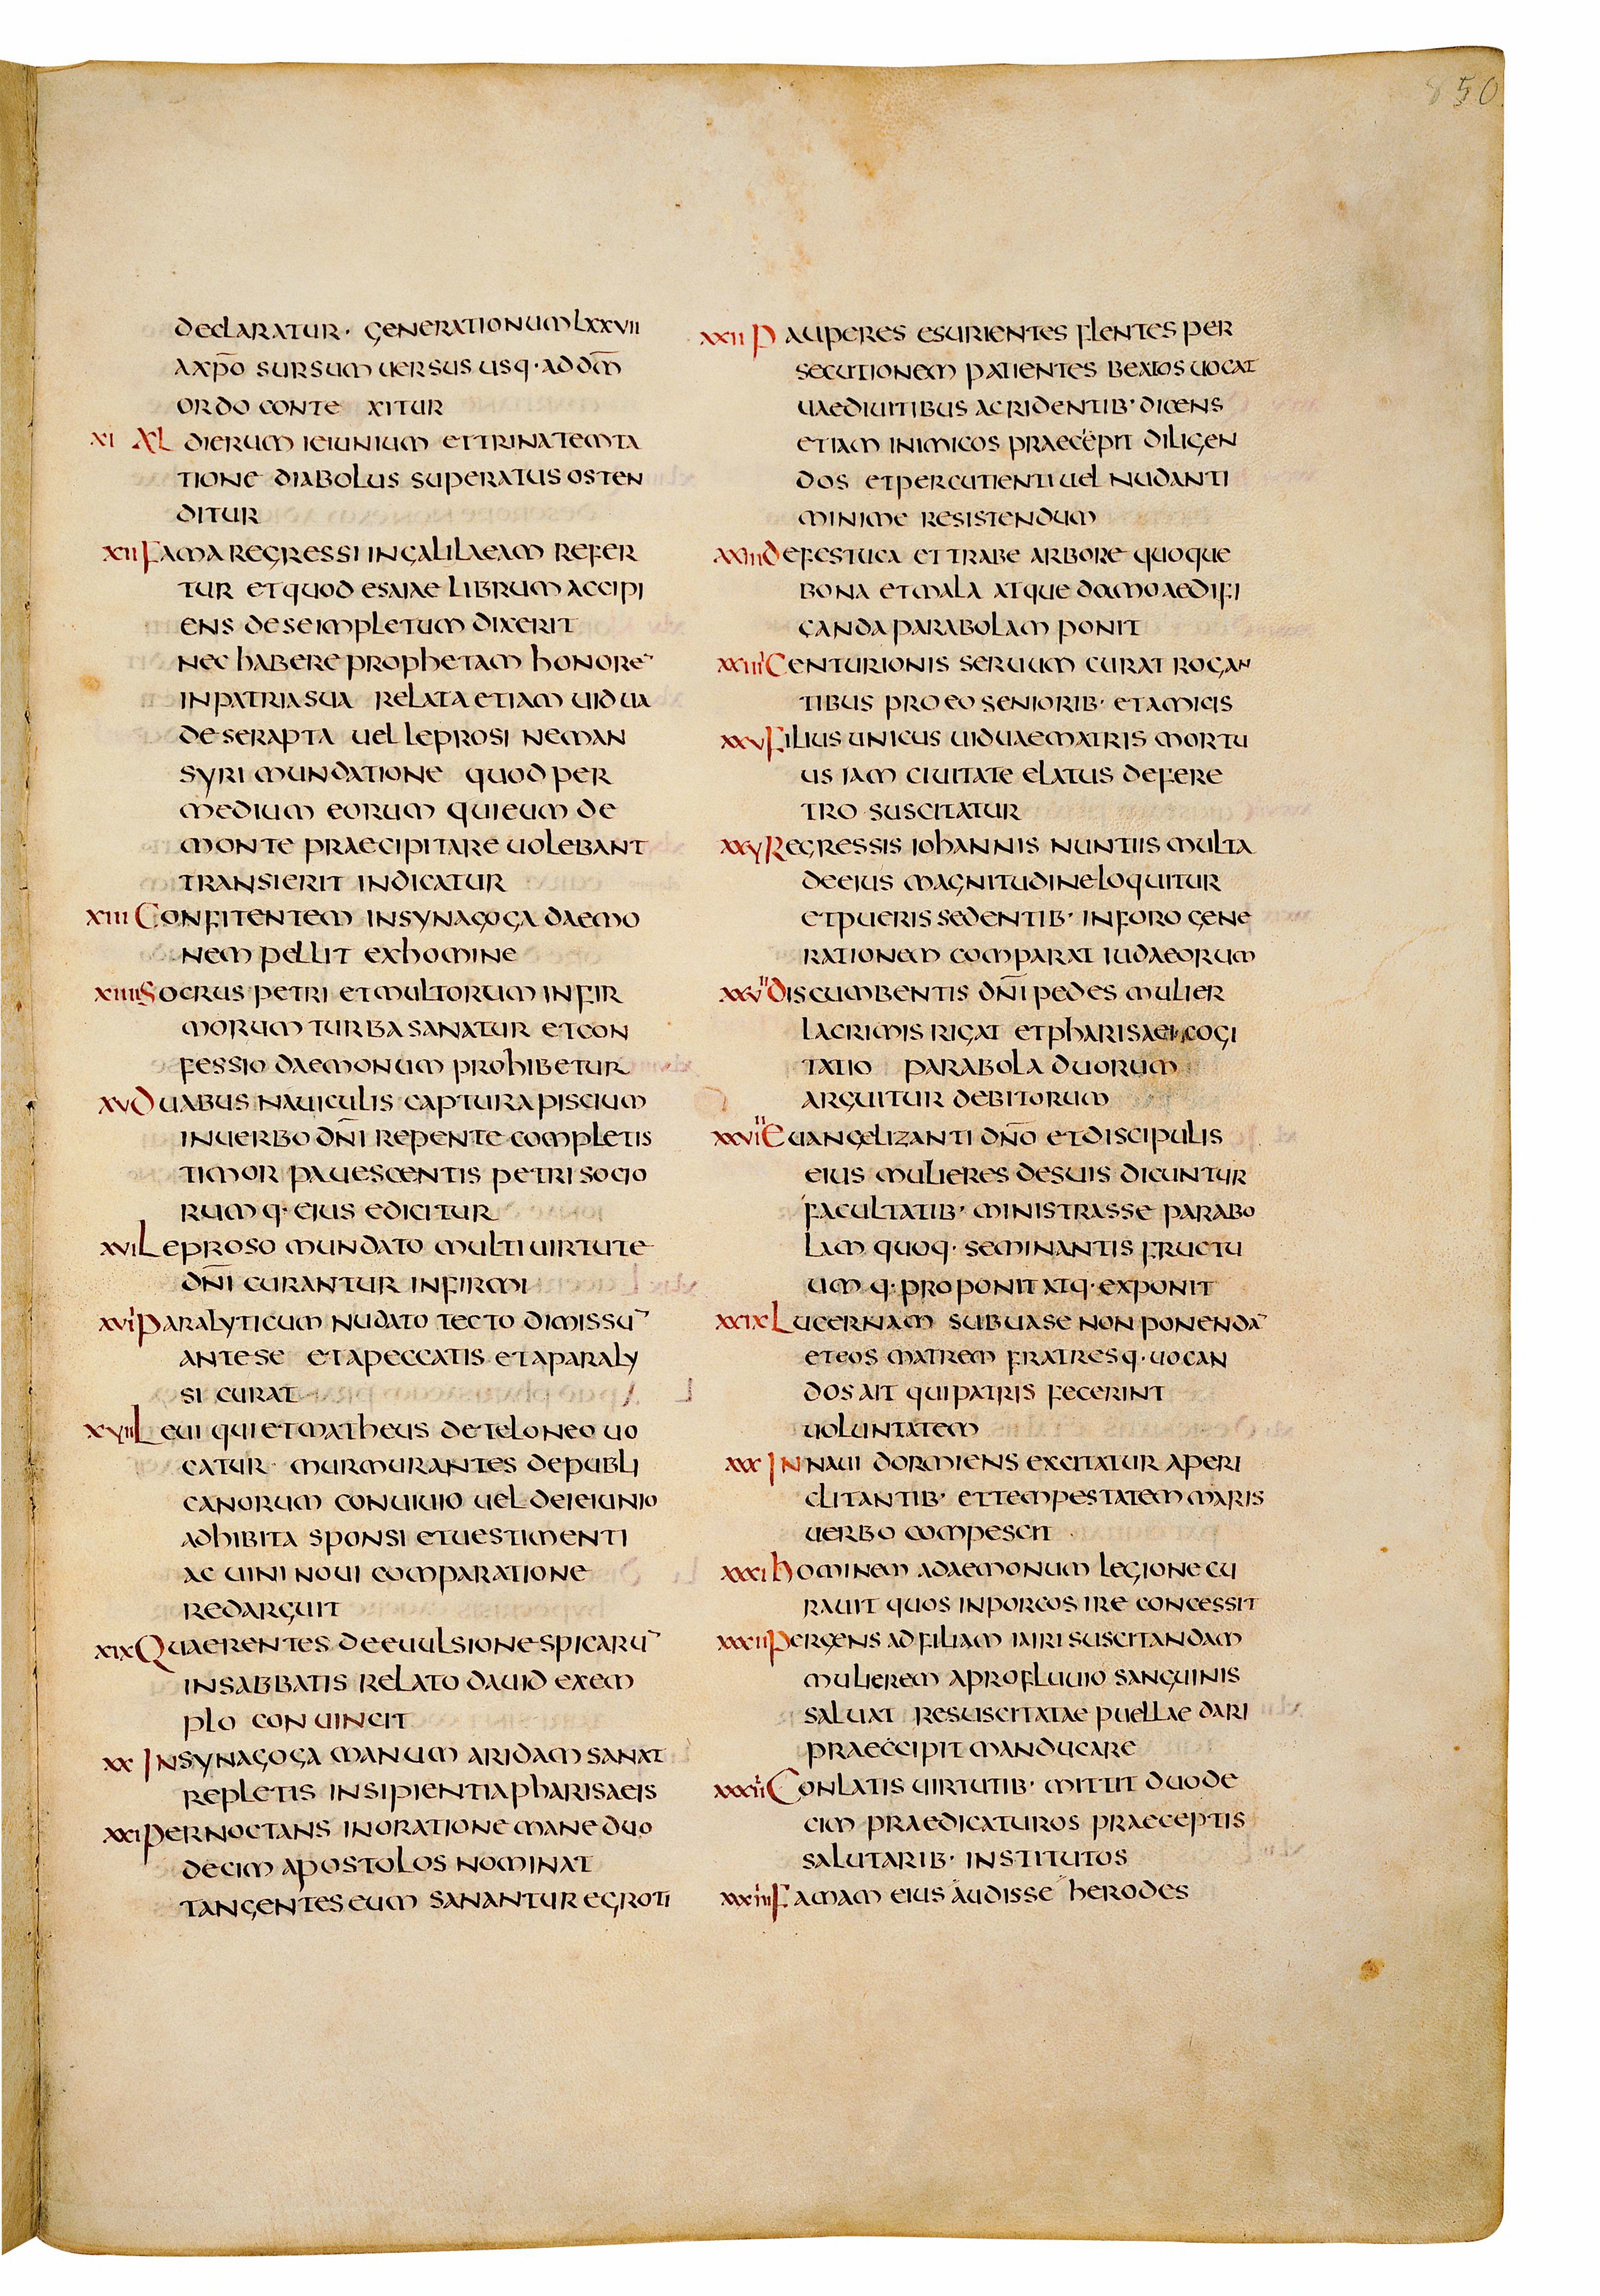 850
declaratur · generationum lxxvii
a xp̄o sursum uersus usq· ad dm̄
ordo conte xitur
xi xl dierum ieiunium et trina temta
tione diabolus superatus osten
ditur
xii Fama regressi in galilaeam refer
tur et quod esaiae librum accipi
ens de se impletum dixerit
nec habere prophetam honorē
in patria sua relata etiam uidua
de serapta uel leprosi neman
syri mundatione quod per
medium eorum qui eum de
monte praecipitare uolebant
transierit indicatur
xiii Confitentem in synagoga daemo
nem pellit ex homine
xiiii Socrus petri et multorum infir
morum turba sanatur et con
fessio daemonum prohibetur
xv Duabus nauiculis captura piscium
in uerbo dn̄i repente completis
timor pauescentis petri socio
rumq· eius edicitur
xvi Leproso mundato multi uirtute
dn̄i curantur infirmi
xvii Paralyticum nudato tecto dimissū
ante se et a peccatis et a paraly
si curat
xviii Leui qui et matheus de teloneo uo
catur · murmurantes de publi
canorum conuiuio uel de ieiunio
adhibita sponsi et uestimenti
ac uini noui comparatione
redarguit
xix Quaerentes de euulsione spicarū
in sabbatis relato dauid exem
plo conuincit
xx In synagoga manum aridam sanat
repletis insipientia pharisaeis
xxi Pernoctans in oratione mane duo
decim apostolos nominat
tangentes eum sanantur egroti
xxii Pauperes esurientes flentes per
secutionem patientes beatos uocat
uae diuitibus ac ridentib· dicens
etiam inimicos praecepit diligen
dos et percutienti uel nudanti
minime resistendum
xxiii De festuca et trabe arbore quoque
bona et mala atque domo aedifi
canda parabolam ponit
xxiiii Centurionis seruum curat rogan
tibus pro eo seniorib· et amicis
xxv Filius unicus uiduae matris mortu
us iam ciuitate elatus de fere
tro suscitatur
xxvi Regressis iohannis nuntiis multa
de eius magnitudine loquitur
et pueris sedentib· in foro gene
rationem comparat iudaeorum
xxvii Discumbentis dn̄i pedes mulier
lacrimis rigat et pharisaei cogi
tatio parabola duorum
arguitur debitorum
xxviii Euangelizanti dn̄o et discipulis
eius mulieres de suis dicuntur
facultatib· ministrasse parabo
lam quoq· seminantis fructu
umq· proponit atq· exponit
xxix Lucernam sub uase non ponendā
et eos matrem fratresq· uocan
dos ait qui patris fecerint
uoluntatem
xxx In naui dormiens excitatur a peri
clitantib· et tempestatem maris
uerbo compescit
xxxi Hominem a daemonum legione cu
rauit quos in porcos ire concessit
xxxii Pergens ad filiam iairi suscitandam
mulierem a profluuio sanguinis
saluat resuscitatae puellae dari
praeccipit manducare
xxxiii Conlatis uirtutib· mittit duode
cim praedicaturos praeceptis
salutarib· institutos
xxxiiii Famam eius audisse herodes